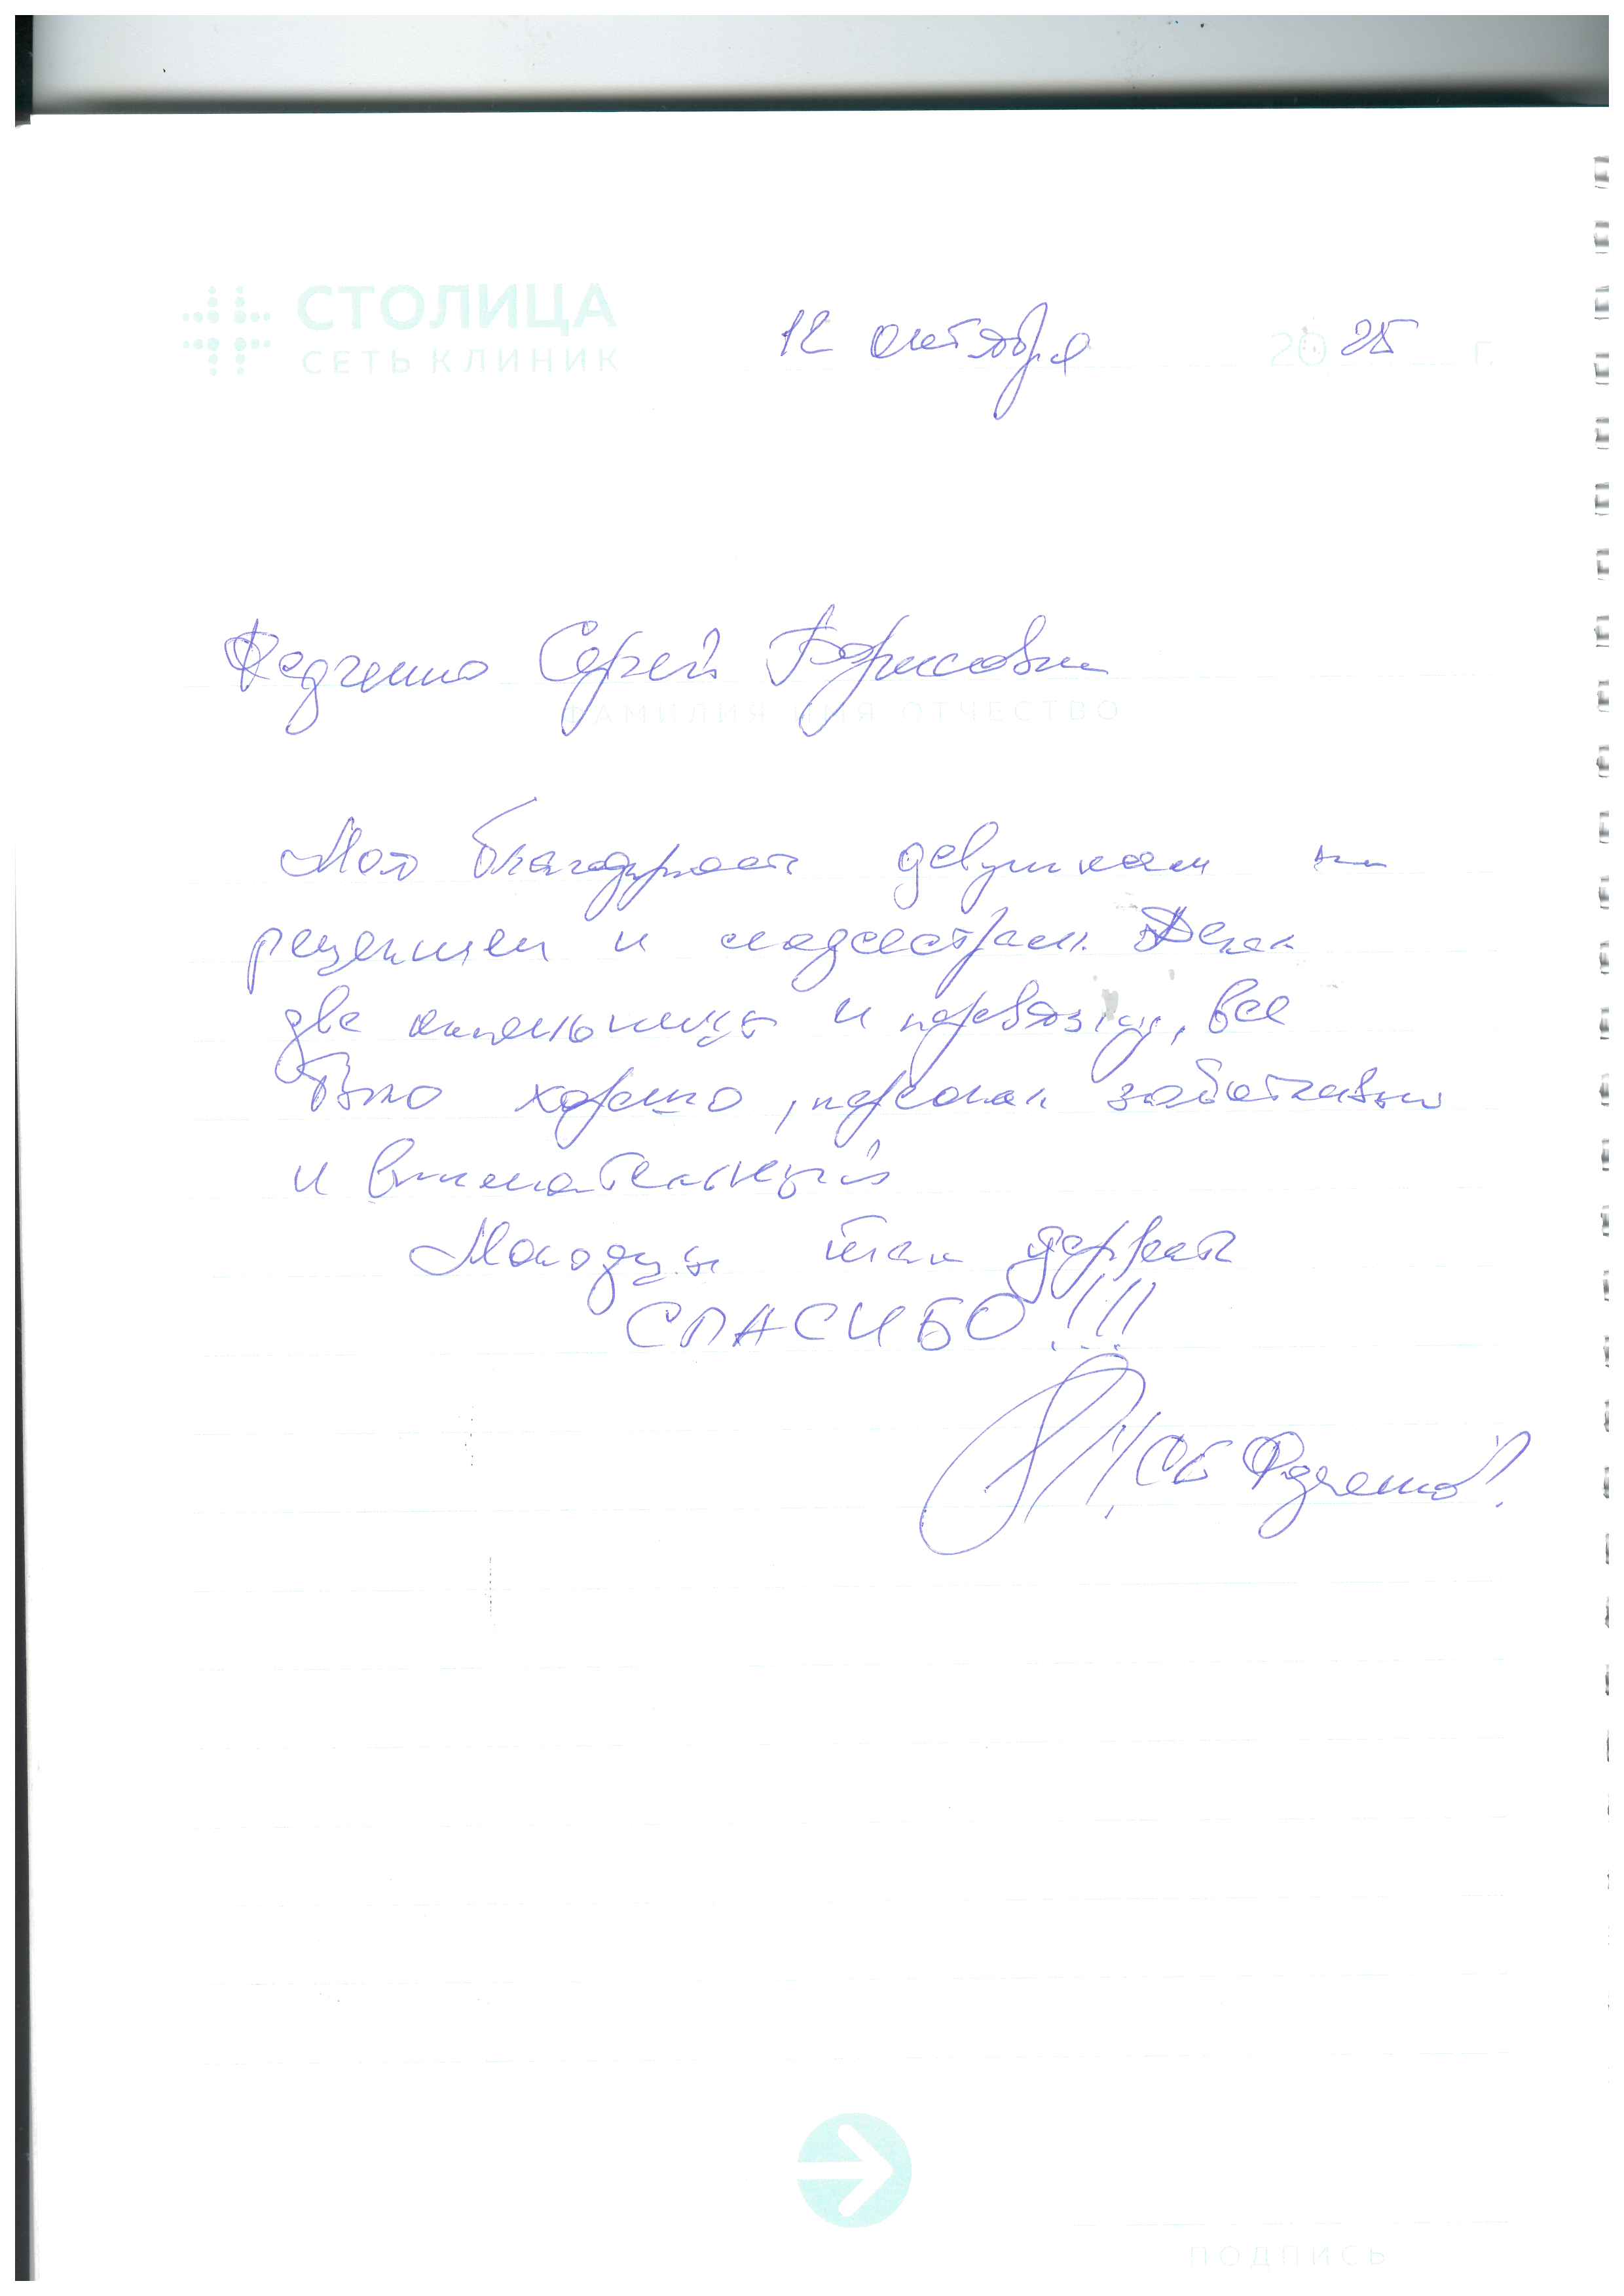 СТОЛИЦА
СЕТЬ КЛИНИК
12 октября 2025 г.
Федченко Сергей Борисович
ФАМИЛИЯ ИМЯ ОТЧЕСТВО
Моя благодарность девушкам на
рецепшен и медсестрам. Делал
две капельницы и перевязку, все
было хорошо, персонал заботливый
и внимательный
Молодцы так держать
СПАСИБО!!!
/СБ Федченко/
ПОДПИСЬ